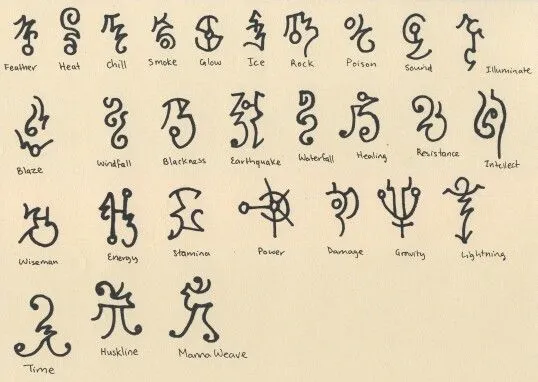 Feather Heat Chill Smoke Glow Ice Rock Poison Sound Illuminate
Blaze Windfall Blackness Earthquake Waterfall Healing Resistance Intellect
Wiseman Energy Stamina Power Damage Gravity Lightning
Time Huskline Manna Weave